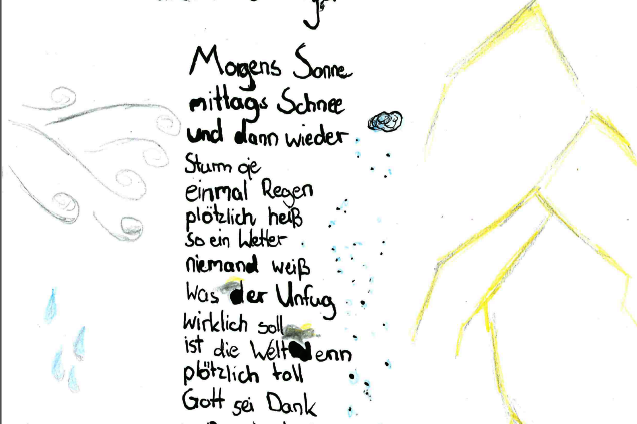 Morgens Sonne
mittags Schnee
und dann wieder
Sturm oje
einmal Regen
plötzlich heiß
so ein Wetter
niemand weiß
Was der Unfug
wirklich soll
ist die Welt denn
plötzlich toll
Gott sei Dank